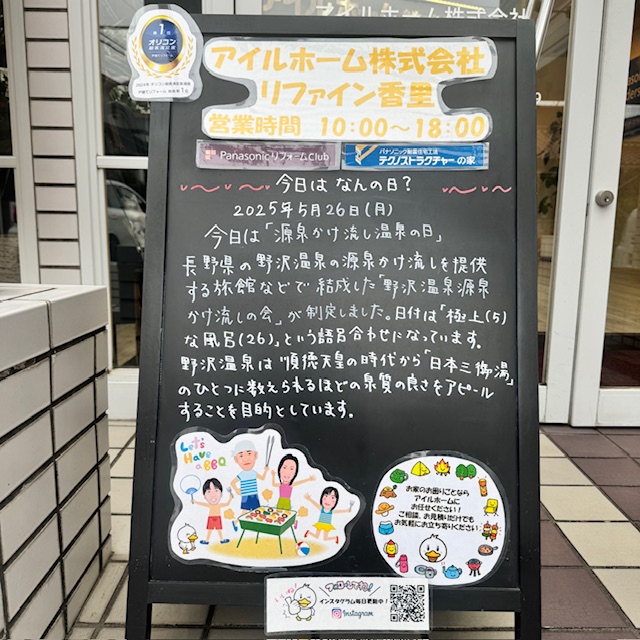 アイルホーム株式会社
第1位
オリコン
顧客満足度
アイルホーム株式会社
リファイン香里
営業時間 10:00〜18:00
PanasonicリフォームClub
パナソニック耐震住宅工法
テクノストラクチャーの家
今日は なんの日?
2025年5月26日(月)
今日は「源泉かけ流し温泉の日」
長野県の野沢温泉の源泉かけ流しを提供
する旅館などで結成した「野沢温泉源泉
かけ流しの会」が制定しました。日付は「極上(5)
な風呂(26)」という語呂合わせになっています。
野沢温泉は順徳天皇の時代から「日本三御湯」
のひとつに数えられるほどの泉質の良さをアピール
することを目的としています。
Let's
Have
a BBQ
お家のお困りごとなら
アイルホームに
お任せください!
ご相談、お見積りだけでも
お気軽にお立ち寄りください
いいね
フォローしてね!
インスタグラム毎日更新中!
Instagram